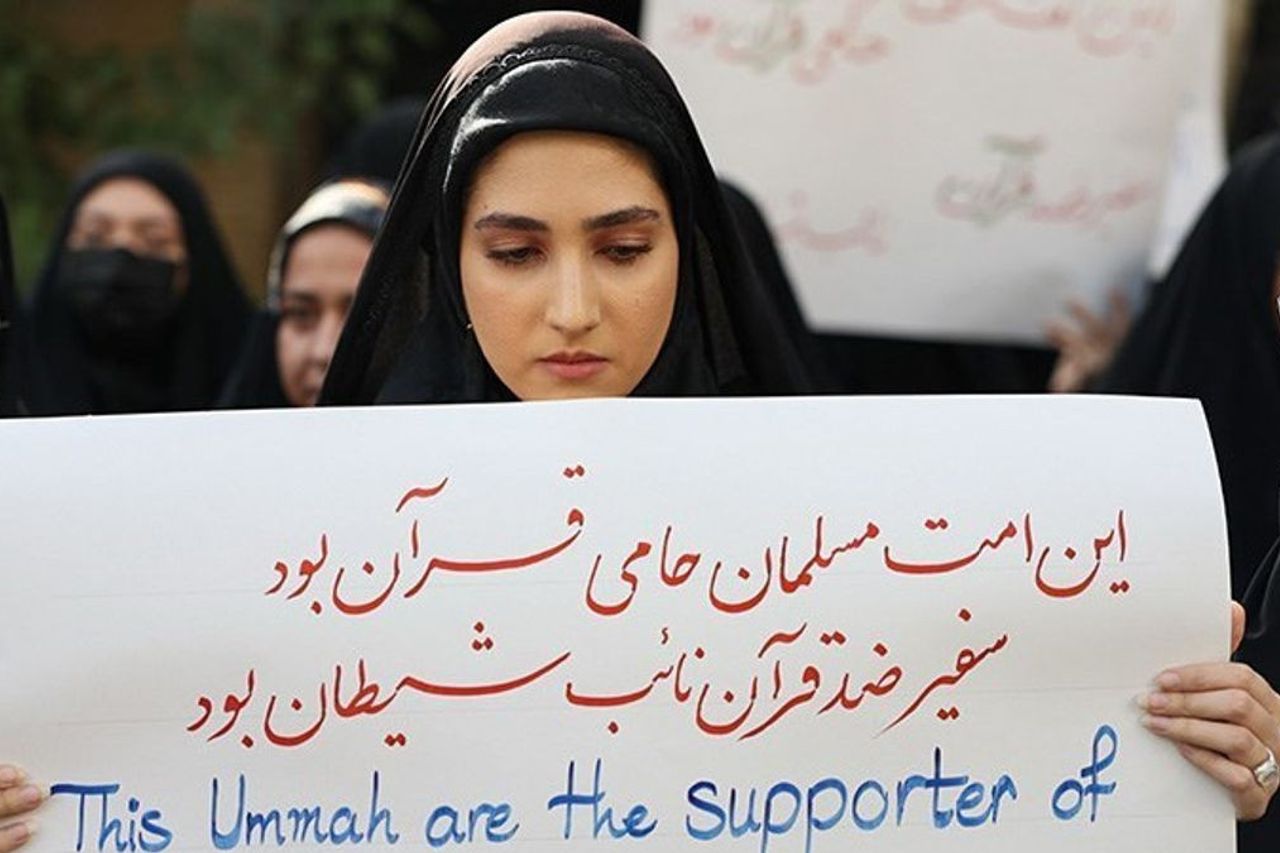 قرآن
این امت مسلمان حامی قرآن بود
سفیر ضد قرآن نائب شیطان بود
This Ummah are the supporter of